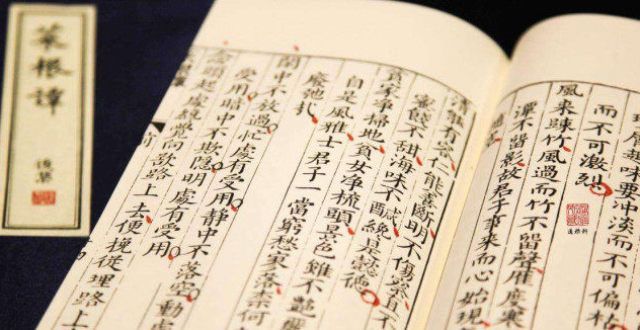 菜根譚
味要沖淡而不可偏枯
而不可激烈
風來疎竹風過而竹不留聲雁度寒
潭不留影故君子事來而心始現
清能有容仁能善斷明不傷察
蜜餞不甜海味不鹹纔是懿德
貧家淨掃地貧女淨梳頭景色雖不艷
自是風雅士君子一當窮愁寥落奈何
廢弛扎
閒中不放過忙處有受用靜中不落空動處
受用暗中不欺隱明處有受用
念頭起處纔覺向欲路上去便挽從理路上